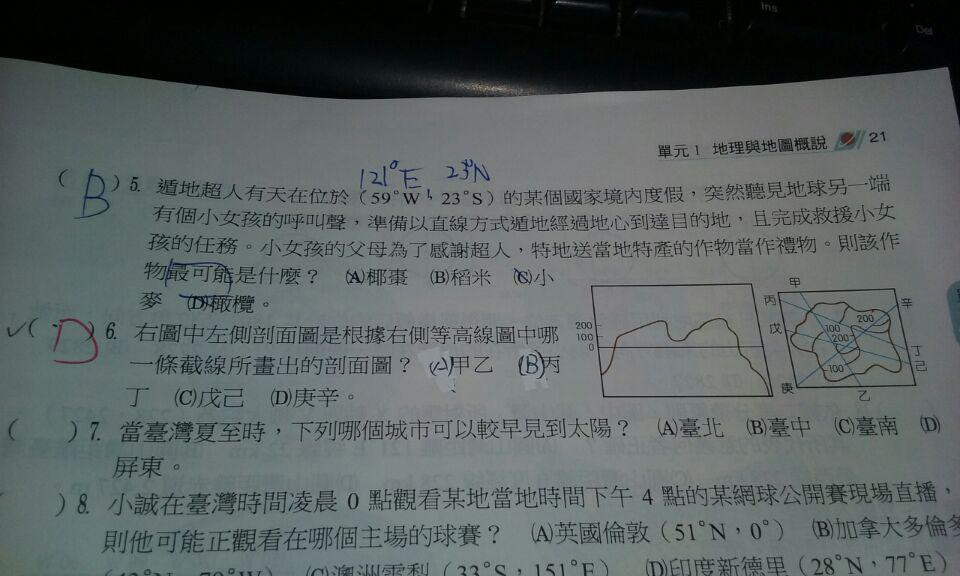 Ins
Del
單元1 地理與地圖概說 21
121°E 23°N
( B ) 5. 遁地超人有天在位於(59°W,23°S)的某個國家境內度假,突然聽見地球另一端
有個小女孩的呼叫聲,準備以直線方式遁地經過地心到達目的地,且完成救援小女
孩的任務。小女孩的父母為了感謝超人,特地送當地特產的作物當作禮物。則該作
物最可能是什麼? (A)椰棗 (B)稻米 (C)小
麥 (D)橄欖。
( D ) 6. 右圖中左側剖面圖是根據右側等高線圖中哪
一條截線所畫出的剖面圖? (A)甲乙 (B)丙
丁 (C)戊己 (D)庚辛。
200
100
0
甲
丙
辛
戊
200
100
200
100
丁
己
庚
乙
( ) 7. 當臺灣夏至時,下列哪個城市可以較早見到太陽? (A)臺北 (B)臺中 (C)臺南 (D)
屏東。
) 8. 小誠在臺灣時間凌晨 0 點觀看某地當地時間下午 4 點的某網球公開賽現場直播,
則他可能正觀看在哪個主場的球賽? (A)英國倫敦(51°N,0°) (B)加拿大多倫多
(C)澳洲雪梨(33°S,151°E) (D)印度新德里(28°N,77°E)